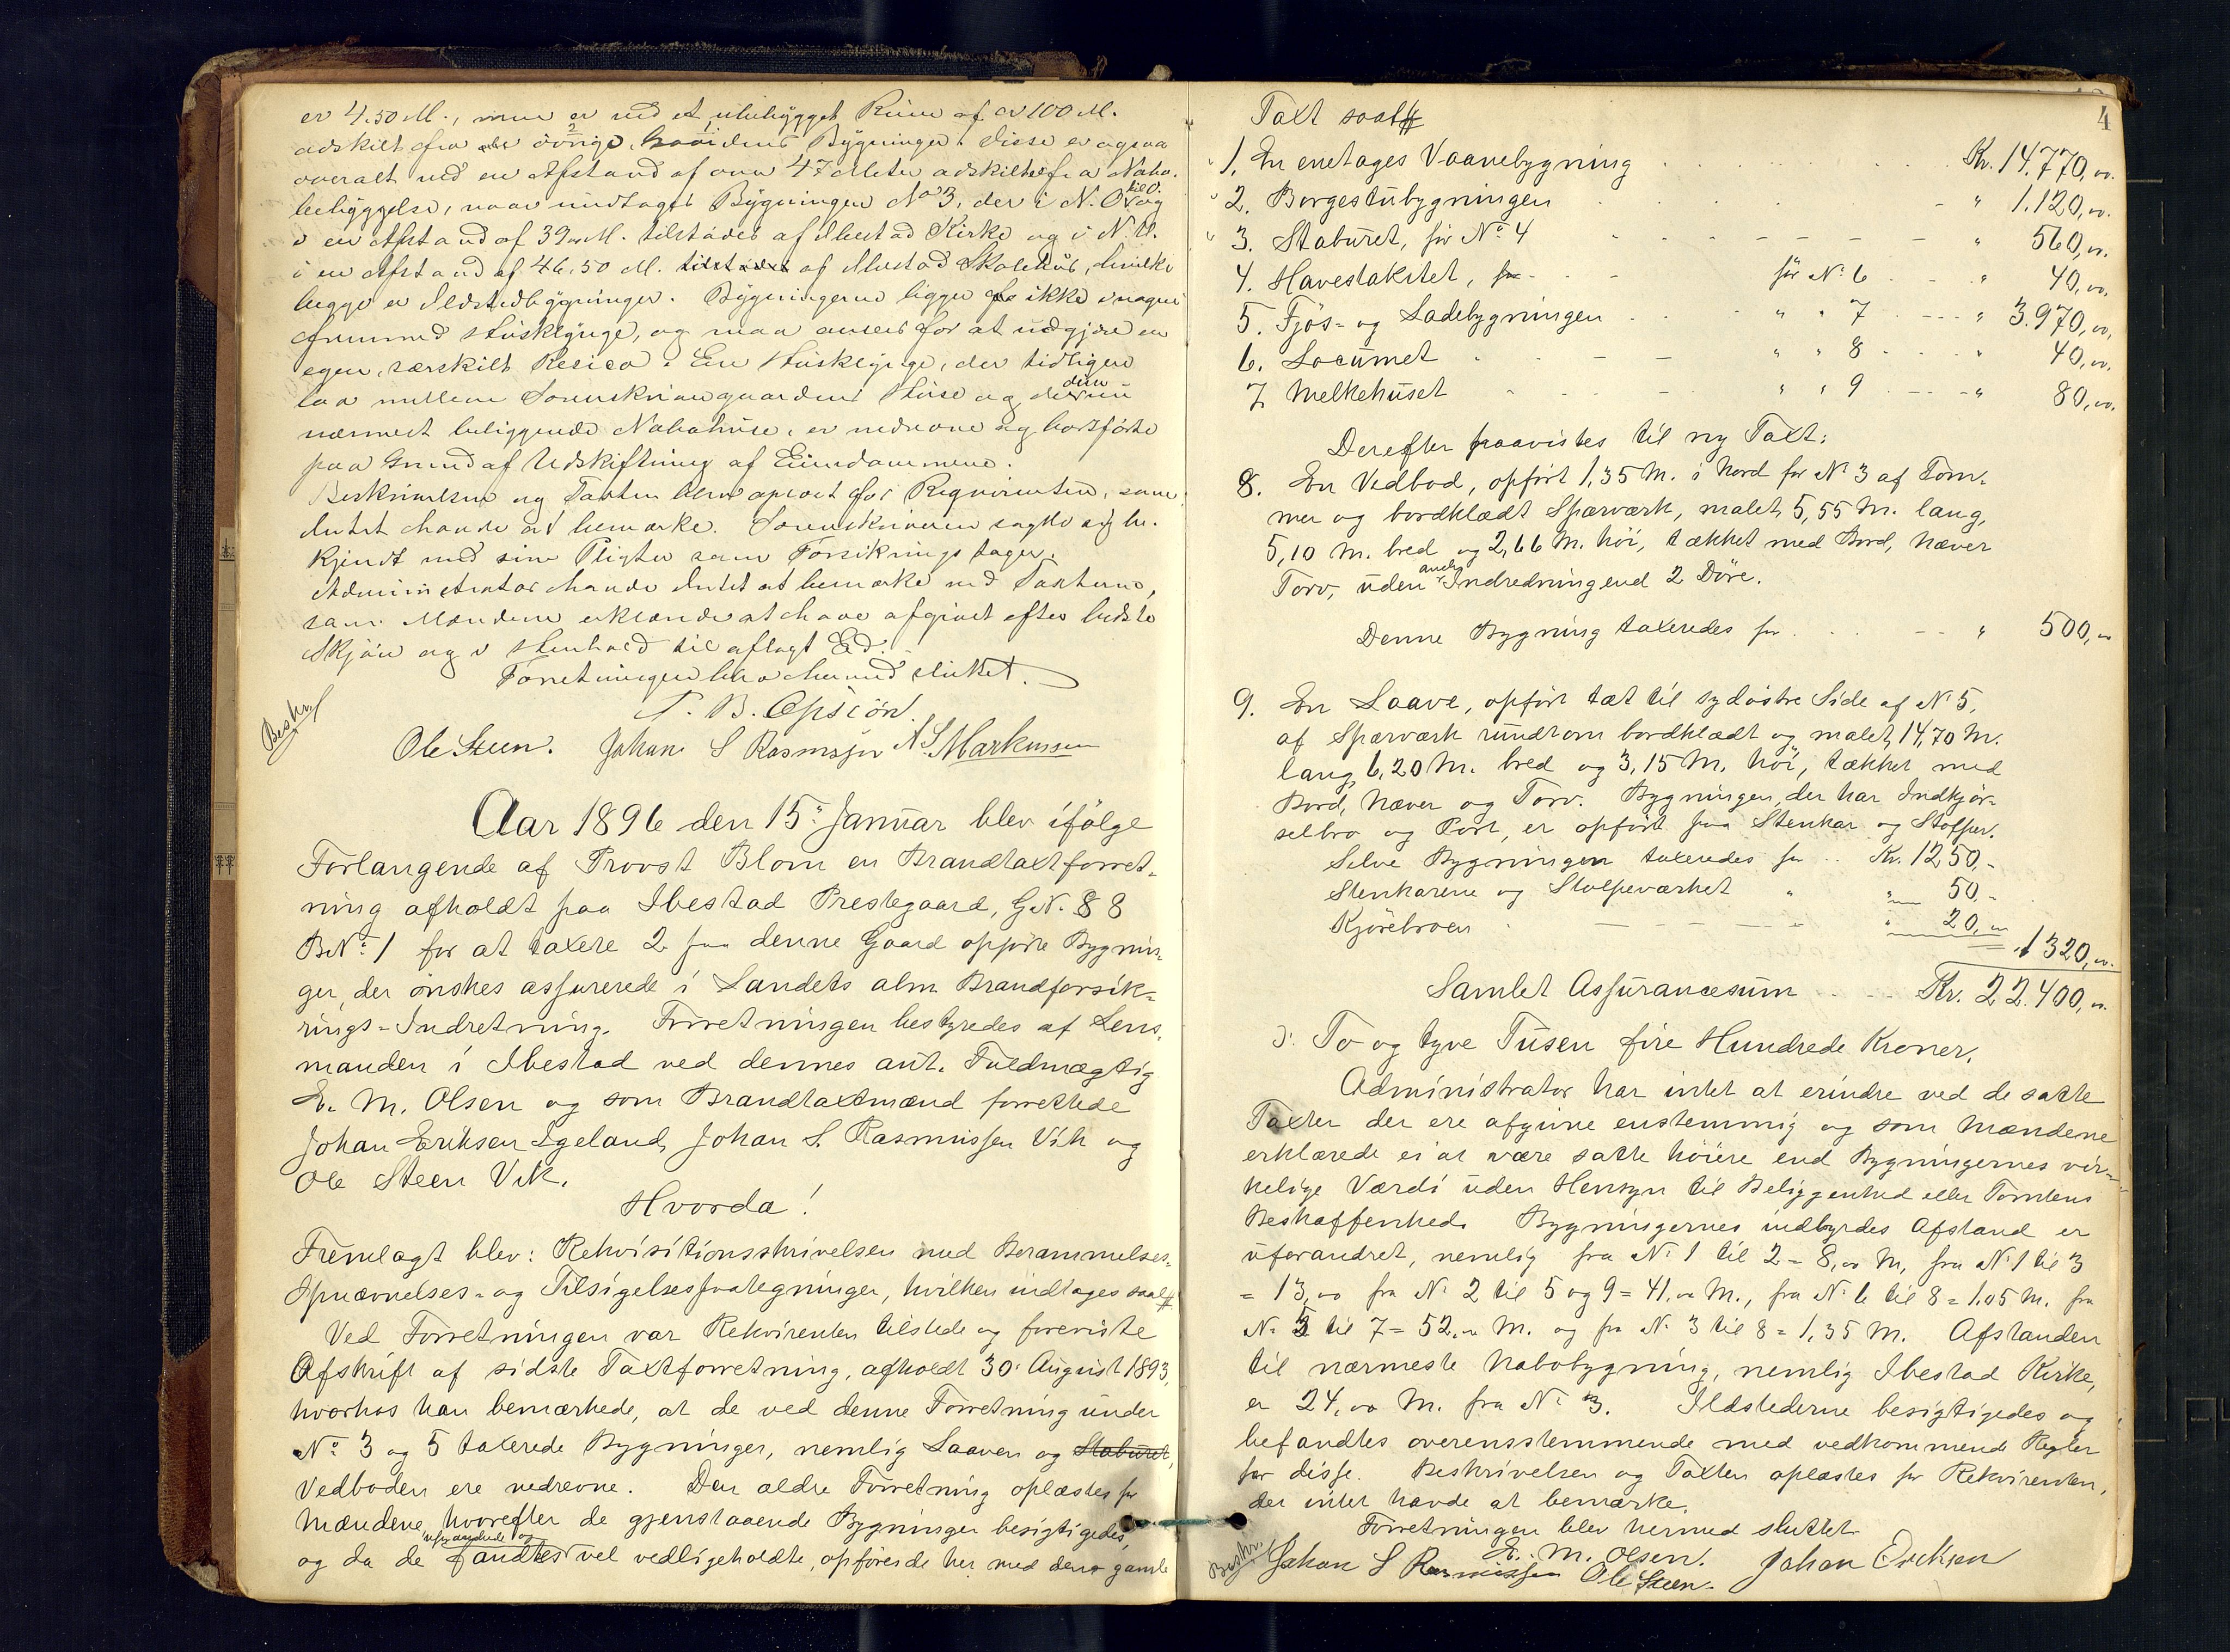 er 4.50 M., men er ved et ubebygget Rum af ca 100 M.
adskilt fra de övrige Gaardens Bygninger. Disse er ogsaa
overalt ved en Afstand af over 47 Meter adskilte fra Nabo-
bebyggelse, naar undtages Bygningen No 3, der i N. O. til O. og
i en Afstand af 39 M. tilstödes af Ibestad Kirke og i N. V.
i en Afstand af 46.50 M. tilstödes af Ibestad Skolehus, hvilke
begge er Ildstedbygninger. Bygningerne ligger ikke i nogen
sammenhængende Husklynge, og maa ansees for at udgjöre en
egen, særskilt Resico. En Husklynge, der tidligere
laa mellem Sorenskrivergaardens Huse og den nu
nærmest beliggende Nabohuse, er nedrevne og bortförte
paa Grund af Udskiftning af Eiendommene.
Beskrivelsen og Taxten blev oplæst for Requirenten, som
Intet havde at bemærke. Sorenskriveren sagde sig be-
kjendt med sine Pligter som Forsikringstager.
Administrator havde Intet at bemærke ved Taxterne,
som Mændene erklærede at have afgivet efter bedste
Skjön og i Henhold til aflagt Ed.
Forretningen blev hermed sluttet.
P. B. Opsiön.
Beskr
Ole Steen. Johan S Rasmusen A S. Markussen
Aar 1896 den 15. Januar blev ifölge
Forlangende af Provst Blom en Brandtaxtforret-
ning afholdt paa Ibestad Prestegaard, G.N. 88
B.No. 1 for at taxere 2 paa denne Gaard opförte Bygnin-
ger, der önskes assurerede i Landets alm Brandforsik-
rings-Indretning. Forretningen bestyredes af Lens-
manden i Ibestad ved dennes aut. Fuldmægtig
E. M. Olsen og som Brandtaxtmænd forrettede
Johan Eriksen Igeland, Johan S. Rasmussen Vik og
Ole Steen Vik.
Hvorda!
Fremlagt blev: Rekvisitionsskrivelsen med Berammelses-
Opnævnelses- og Tilsigelsespaategninger, hvilken indtages saal#
Ved Forretningen var Rekvirenten tilstede og foreviste
Afskrift af sidste Taxtforretning, afholdt 30. August 1893,
hvorhos han bemærkede, at de ved denne Forretning under
No. 3 og 5 taxerede Bygninger, nemlig Laaven og Staburet,
Vedboden ere nedrevne. Den ældre Forretning oplæstes for
Mændene, hvorefter de gjenstaaende Bygninger besigtigedes,
og da de uforandrede og fandtes vel vedligeholdte, opföres de her med dens gamle
4
Taxt saal#
1. En enetages Vaanebygning . . . Kr. 14.770,00.
2. Borgestubygningen . . . " 1.120,00.
3. Staburet, för No. 4 - - - " 560,00.
4. Havestakitet, för No. 6 - - " 40,00.
5. Fjös- og Ladebygningen . . . " " 7 - - - " 3.970,00.
6. Locumet . . . " " 8 . . . " 40,00.
7. Melkehuset . . . " " 9 - - - " 80,00.
Derefter paavistes til ny Taxt:
8. En Vedbod, opfört 1,35 M. i Nord for No 3 af Töm-
mer og bordklædt Spærværk, malet, 5,55 M. lang,
5,10 M. bred og 2,66 M. höi, tækket med Bord, Næver
Torv, uden anden Indredning end 2 Döre.
Denne Bygning taxeredes for . . . " 500,00
9. En Laave, opfört tæt til sydöstre Side af No 5,
af Spærværk rundtom bordklædt og malet, 14,70 M.
lang, 6,20 M. bred og 3,15 M. höi, tækket med
Bord, Næver og Torv. Bygningen, der har Indkjör-
selbro og Port, er opfört paa Stenkar og Stolper.
Selve Bygningen taxeredes for . . Kr. 1250,-
Stenkarene og Stolpeværket " " 50,-
Kjörebroen - - - " 20,00
1320,00.
Samlet Assurancesum . . . Kr. 22.400,00.
ɔ: To og tyve Tusen fire Hundrede Kroner.
Administrator har intet at erindre ved de satte
Taxter der ere afgivne enstemmig og som Mændene
erklærede ei at være satte höiere end Bygningernes vir-
kelige Værdi uden Hensyn til Beliggenhed eller Tomtens
Beskaffenhed. Bygningernes indbyrdes Afstand er
uforandret, nemlig fra No 1 til 2 = 8,00 M, fra No 1 til 3
= 13,00 fra No 2 til 5 og 9 = 41,00 M., fra No 6 til 8 = 1,05 M. fra
No 5 til 7 = 52,00 M. og fra No 3 til 8 = 1,35 M. Afstanden
til nærmeste Nabobygning, nemlig Ibestad Kirke,
er 24,00 M. fra No 3. Ildstederne besigtigedes og
befandtes overensstemmende med vedkommende Regler
for disse. Beskrivelsen og Taxten oplæstes for Rekvirenten,
der intet havde at bemærke.
Forretningen blev hermed sluttet.
E. M. Olsen.
Beskr. Johan S Rasmussen Ole Steen. Johan Eriksen